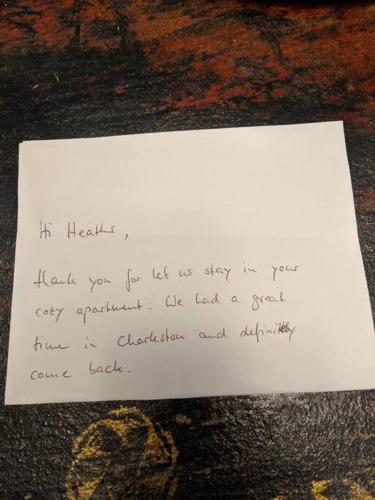 Hi Heather,
thank you for let us stay in your
cozy apartment. We had a great
time in Charleston and definitely
come back.